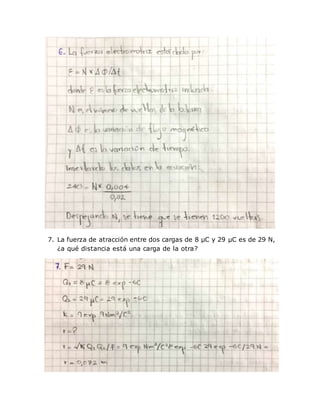 6. La fuerza electromotriz esta dada por:
E = N × ΔΦ/Δt
donde E es la fuerza electromotriz inducida
N es el número de vueltas de la bobina
ΔΦ es la variación de flujo magnético
y Δt es la variación de tiempo.
Insertando los datos en la ecuación:
240 = N× 0,004
0,02
Despejando N, se tiene que se tienen 1200 vueltas.
7. La fuerza de atracción entre dos cargas de 8 μC y 29 μC es de 29 N,
¿a qué distancia está una carga de la otra?
7. F= 29 N
Q₁ = 8 μC = 8 exp -6C
Q₂ = 29 μC = 29 exp -6C
K = 9 exp 9Nm²/C²
r = ?
r = √K Q₁ Q₂/F = 9 exp Nm²/C² 8 exp -6C 29 exp -6C/29 N =
r = 0,072 m